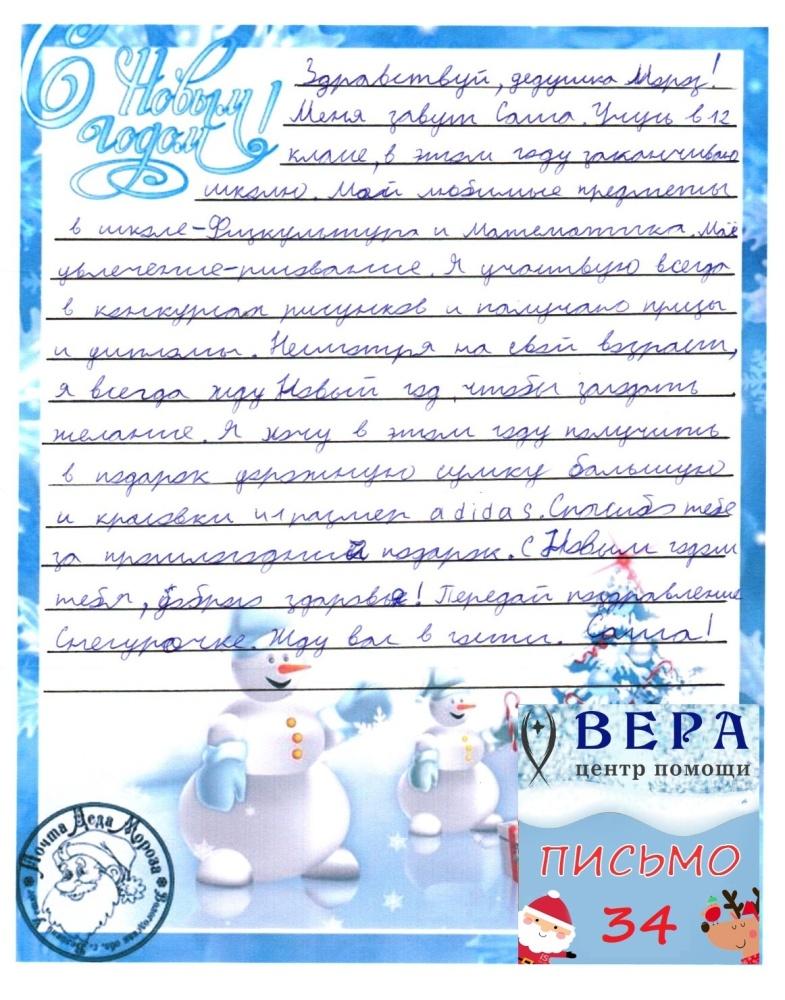 С Новым
годом!
Здравствуй, дедушка Мороз!
Меня завут Саша. Учусь в 12
классе, в этом году заканчиваю
школю. Мои любимые предметы
в школе-Физкультура и Математика. Моё
увлечение-рисование. Я участвую всегда
в конкурсах рисунков и получаю призы
и дипломы. Несмотря на свой возраст,
я всегда жду Новый год, чтобы загадать
желание. Я хочу в этом году получить
в подарок дорожную сумку большую
и красовки 41 размер adidas. Спасибо тебе
за прошлогодний подарок. С Новым годом
тебя, доброго здоровья! Передай поздравление
Снегурочке. Жду вас в гости. Саша!
ВЕРА
центр помощи
ПИСЬМО
34
Почта Деда Мороза